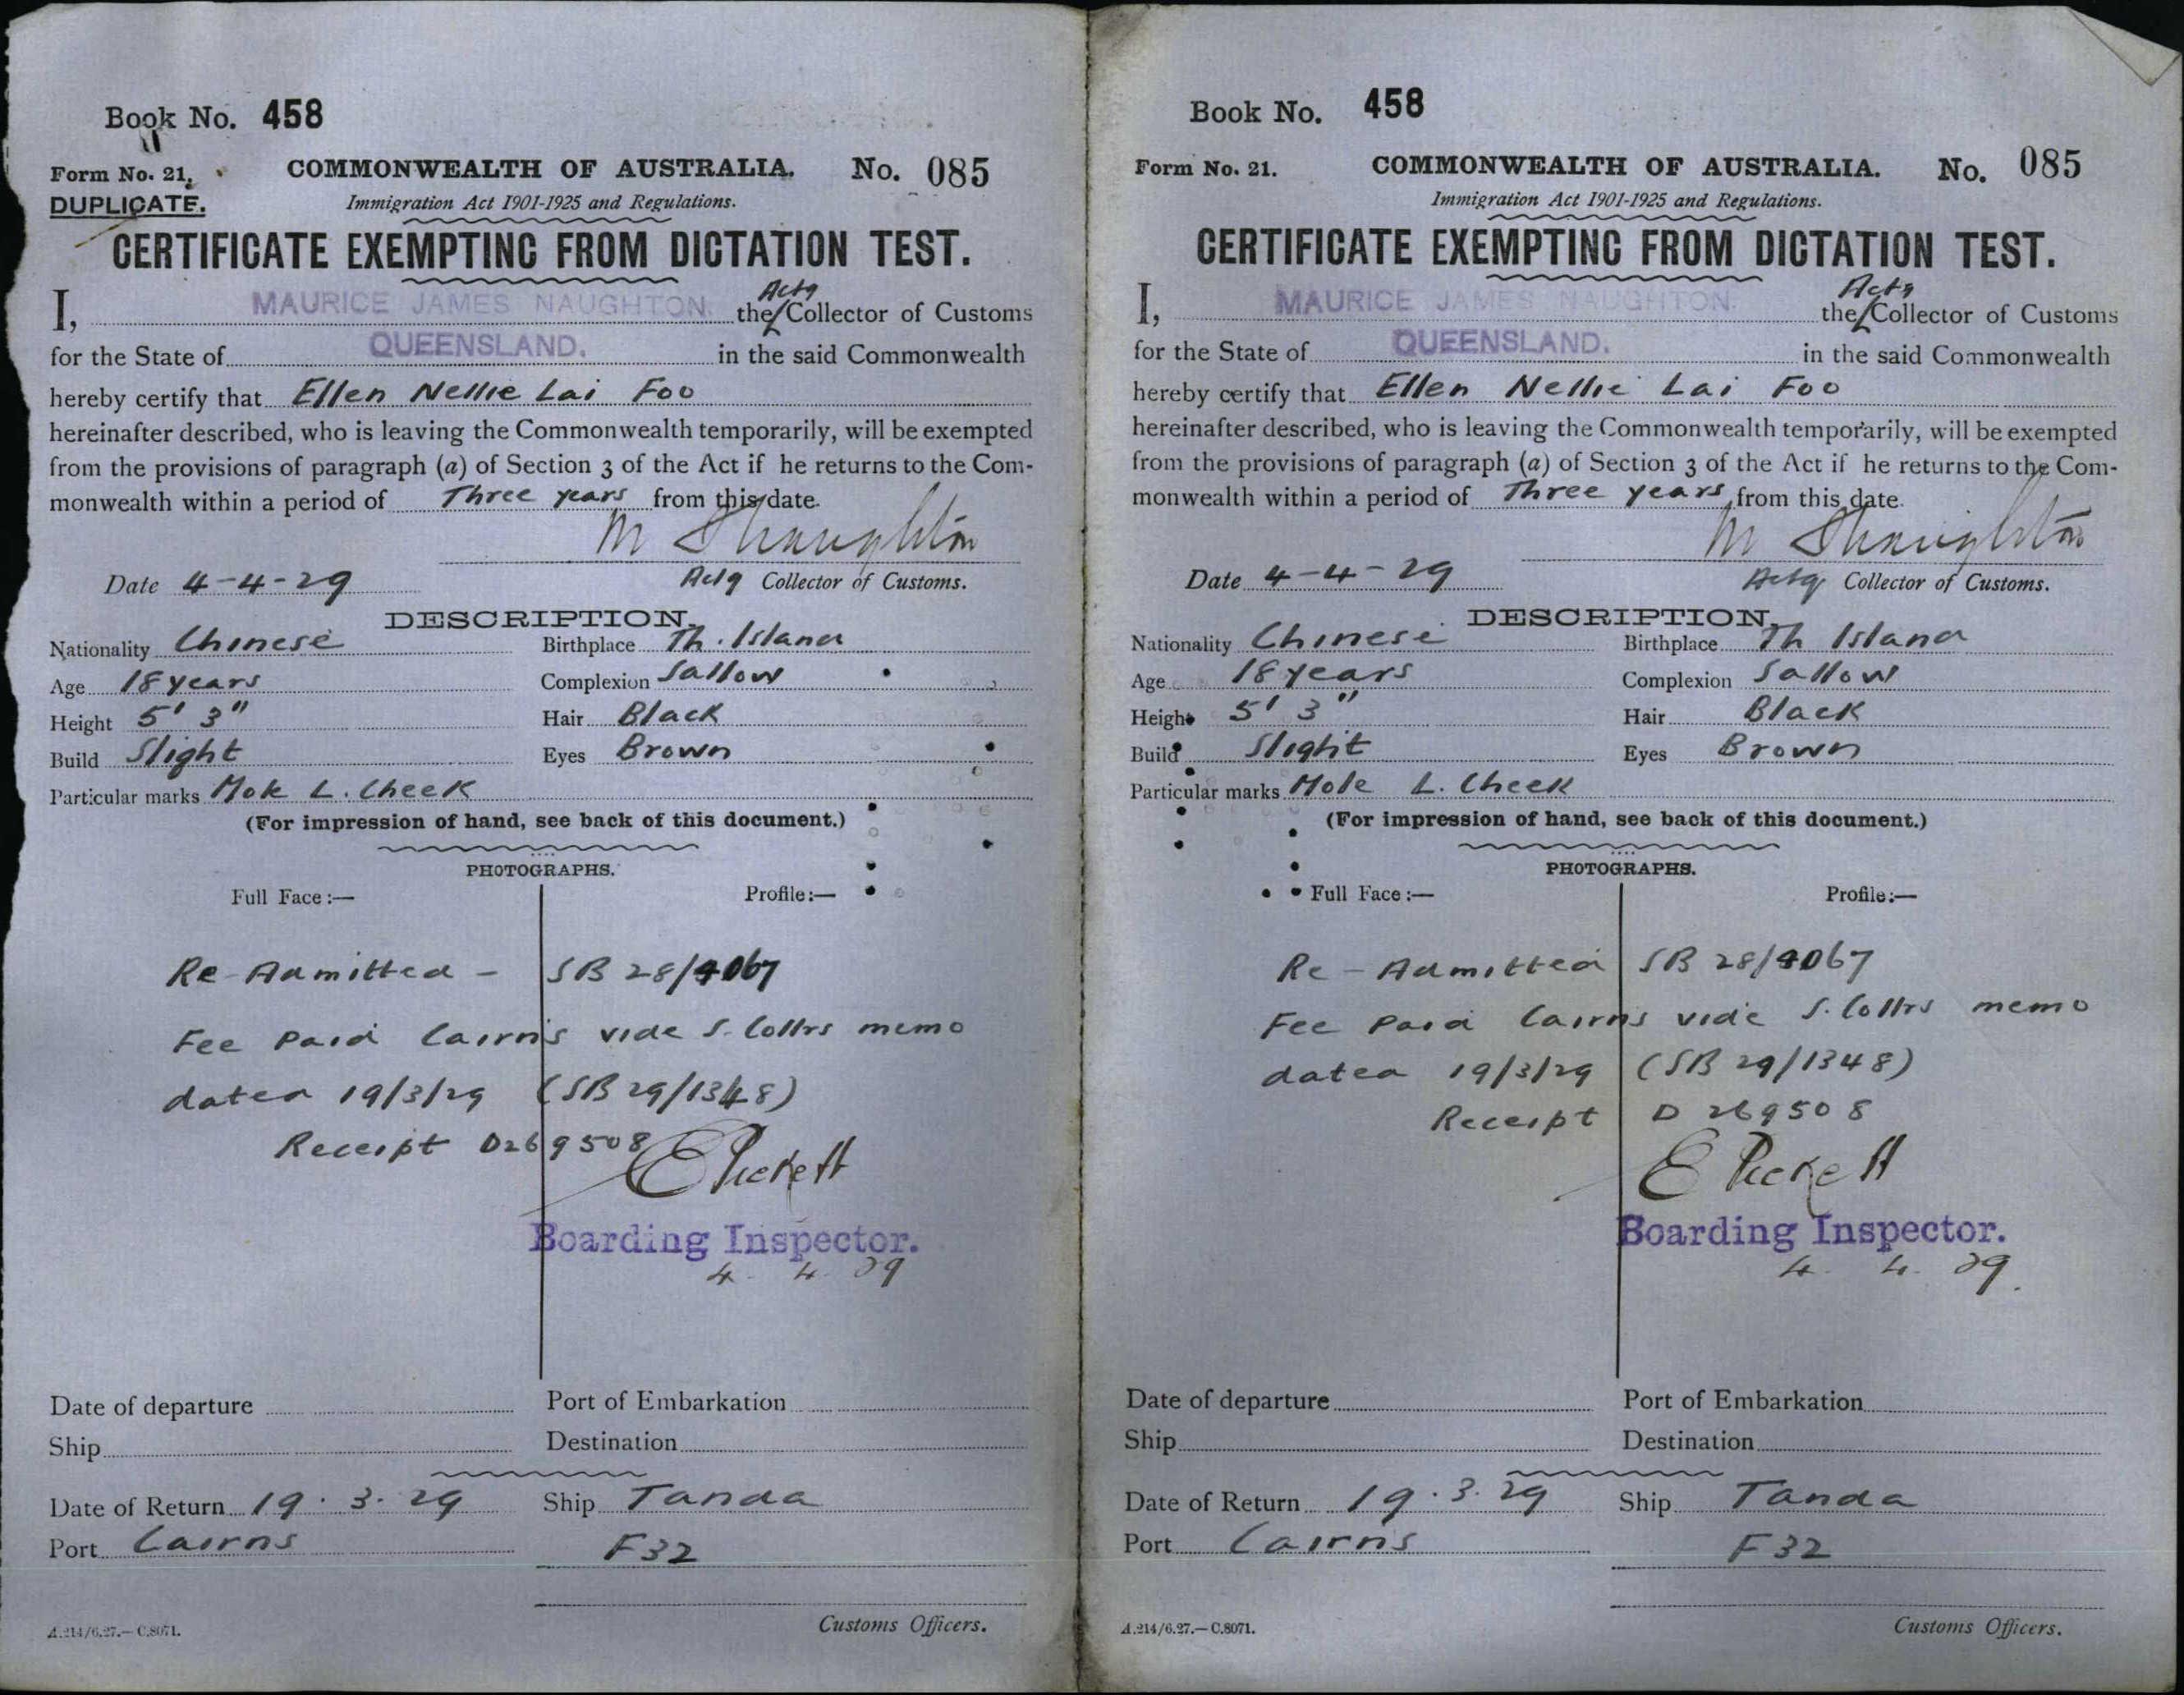 Book No. 458
Form No. 21.
DUPLICATE.
COMMONWEALTH OF AUSTRALIA. No. 085
Immigration Act 1901-1925 and Regulations.
CERTIFICATE EXEMPTING FROM DICTATION TEST.
I, MAURICE JAMES NAUGHTON. the Actg Collector of Customs
for the State of QUEENSLAND. in the said Commonwealth
hereby certify that Ellen Nellie Lai Foo
hereinafter described, who is leaving the Commonwealth temporarily, will be exempted
from the provisions of paragraph (a) of Section 3 of the Act if he returns to the Com-
monwealth within a period of Three years from this date.
M J Naughton
Date 4-4-29 Actg Collector of Customs.
DESCRIPTION.
Nationality Chinese Birthplace Th. Island
Age 18 years Complexion Sallow
Height 5' 3" Hair Black
Build Slight Eyes Brown
Particular marks Mole L. Cheek
(For impression of hand, see back of this document.)
PHOTOGRAPHS.
Full Face:— Profile:—
Re-Admitted - SB 28/4067
Fee Paid Cairns vide S. Collrs memo
dated 19/3/29 (SB 29/1348)
Receipt D269508
E Pickett
Boarding Inspector.
4. 4. 29
Date of departure Port of Embarkation
Ship Destination
Date of Return 19.3.29 Ship Tanda
Port Cairns F32
Customs Officers.
A.214/6.27.—C.8071.
Book No. 458
Form No. 21. COMMONWEALTH OF AUSTRALIA. No. 085
Immigration Act 1901-1925 and Regulations.
CERTIFICATE EXEMPTING FROM DICTATION TEST.
I, MAURICE JAMES NAUGHTON. the Actg Collector of Customs
for the State of QUEENSLAND. in the said Commonwealth
hereby certify that Ellen Nellie Lai Foo
hereinafter described, who is leaving the Commonwealth temporarily, will be exempted
from the provisions of paragraph (a) of Section 3 of the Act if he returns to the Com-
monwealth within a period of Three years from this date.
M J Naughton
Date 4-4-29 Actg Collector of Customs.
DESCRIPTION.
Nationality Chinese Birthplace Th Island
Age 18 years Complexion Sallow
Height 5' 3" Hair Black
Build Slight Eyes Brown
Particular marks Mole L. Cheek
(For impression of hand, see back of this document.)
PHOTOGRAPHS.
Full Face:— Profile:—
Re-Admitted SB 28/4067
Fee Paid Cairns vide S. Collrs memo
dated 19/3/29 (SB 29/1348)
Receipt D 269508
E Pickett
Boarding Inspector.
4. 4. 29.
Date of departure Port of Embarkation
Ship Destination
Date of Return 19.3.29 Ship Tanda
Port Cairns F32
Customs Officers.
A.214/6.27.—C.8071.